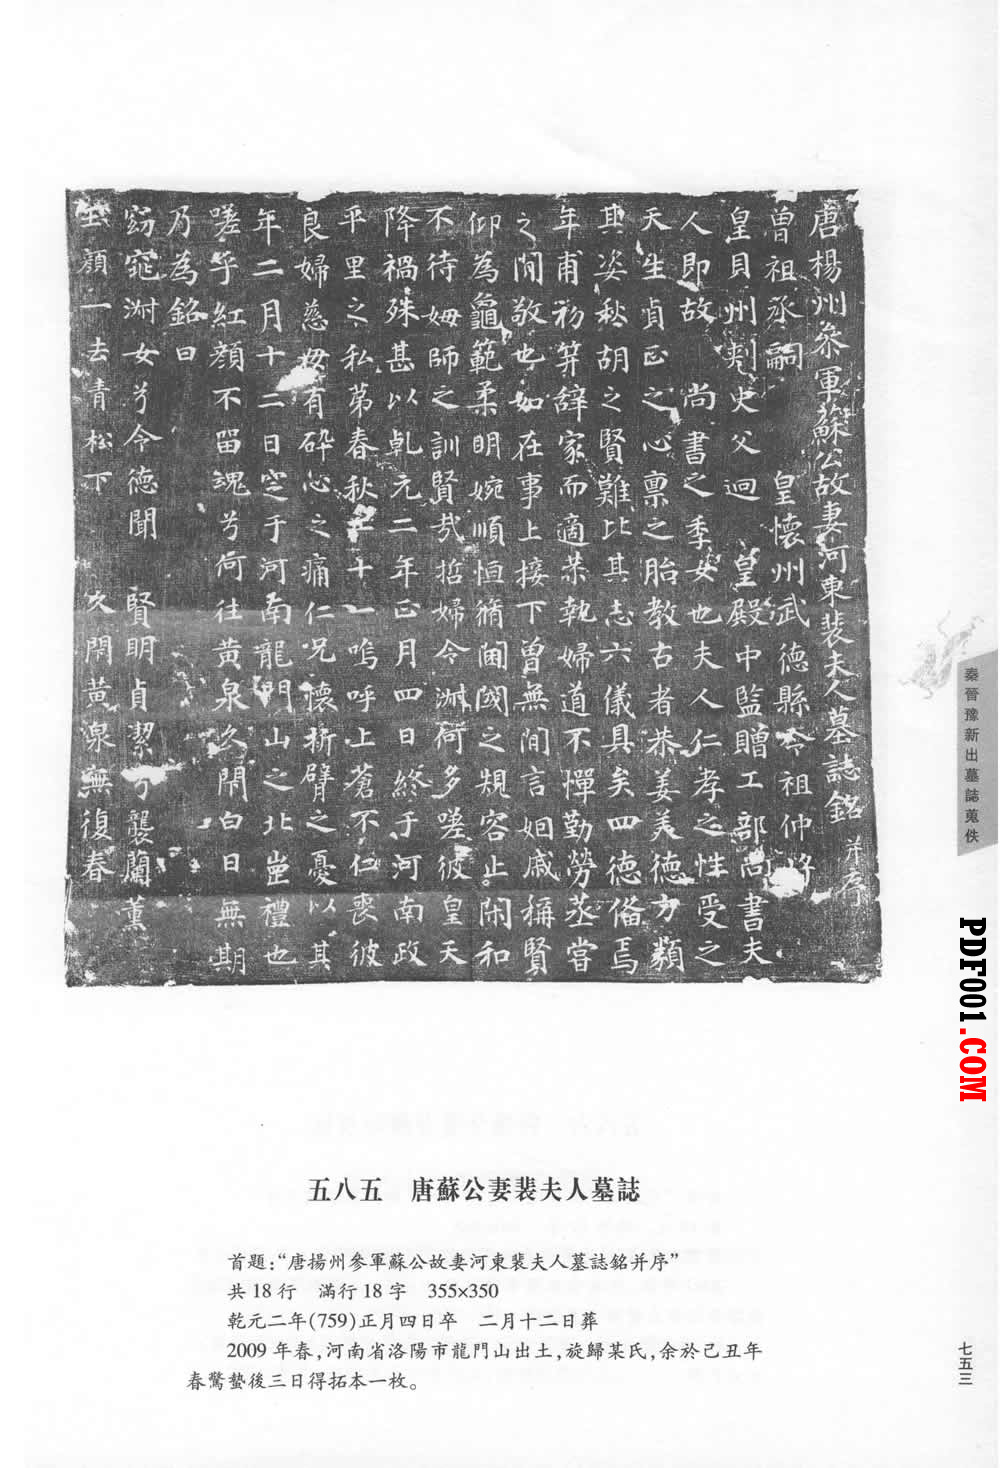 唐楊州參軍蘇公故妻河東裴夫人墓誌銘并序
曾祖承嗣 皇懷州武德縣令祖仲將
皇貝州刾史父迥 皇殿中監贈工部尚書夫
人即故 尚書之季女也夫人仁孝之性受之
天生貞正之心禀之胎教古者恭姜美德方類
其姿秋胡之賢難比其志六儀具矣四德俻焉
年甫初笄辝家而適恭執婦道不憚勤勞烝嘗
之間敬也如在事上接下曾無間言姻戚稱賢
仰為龜範柔明婉順恒脩閫國之䂓容止閑和
不待姆師之訓賢㢤哲婦令淑荷多嗟彼皇天
降禍殊甚以乹元二年正月四日終于河南政
平里之私苐春秋二十一嗚呼上蒼不仁喪彼
良婦慈母有碎心之痛仁兄懷折臂之憂以其
年二月十二日空于河南龍門山之北崗禮也
嗟乎紅顏不留魂兮何往黄泉久閇白日無期
乃為銘曰
窈窕淑女兮令德聞 賢明貞潔兮襲蘭薰
玉顏一去青松下 久閇黄泉無復春
秦晉豫新出墓誌蒐佚
PDF001.COM
五八五 唐蘇公妻裴夫人墓誌
首題:“唐揚州參軍蘇公故妻河東裴夫人墓誌銘并序”
共18行 滿行18字 355×350
乾元二年(759)正月四日卒 二月十二日葬
2009年春,河南省洛陽市龍門山出土,旋歸某氏,余於己丑年
春驚蟄後三日得拓本一枚。
七五三